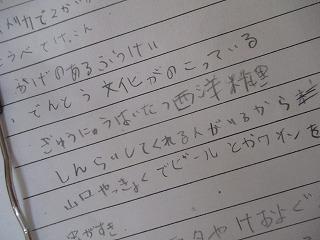 バカで2が
うべてけっこん
かげのあるぶつけい
でんとう文化がのこっている
ぎゅうにゅうをばいたつ 西洋
しんらいしてくれる人がいるから
山口やっきょくでビールとかワインを
虫がすき。
やけおよぐ